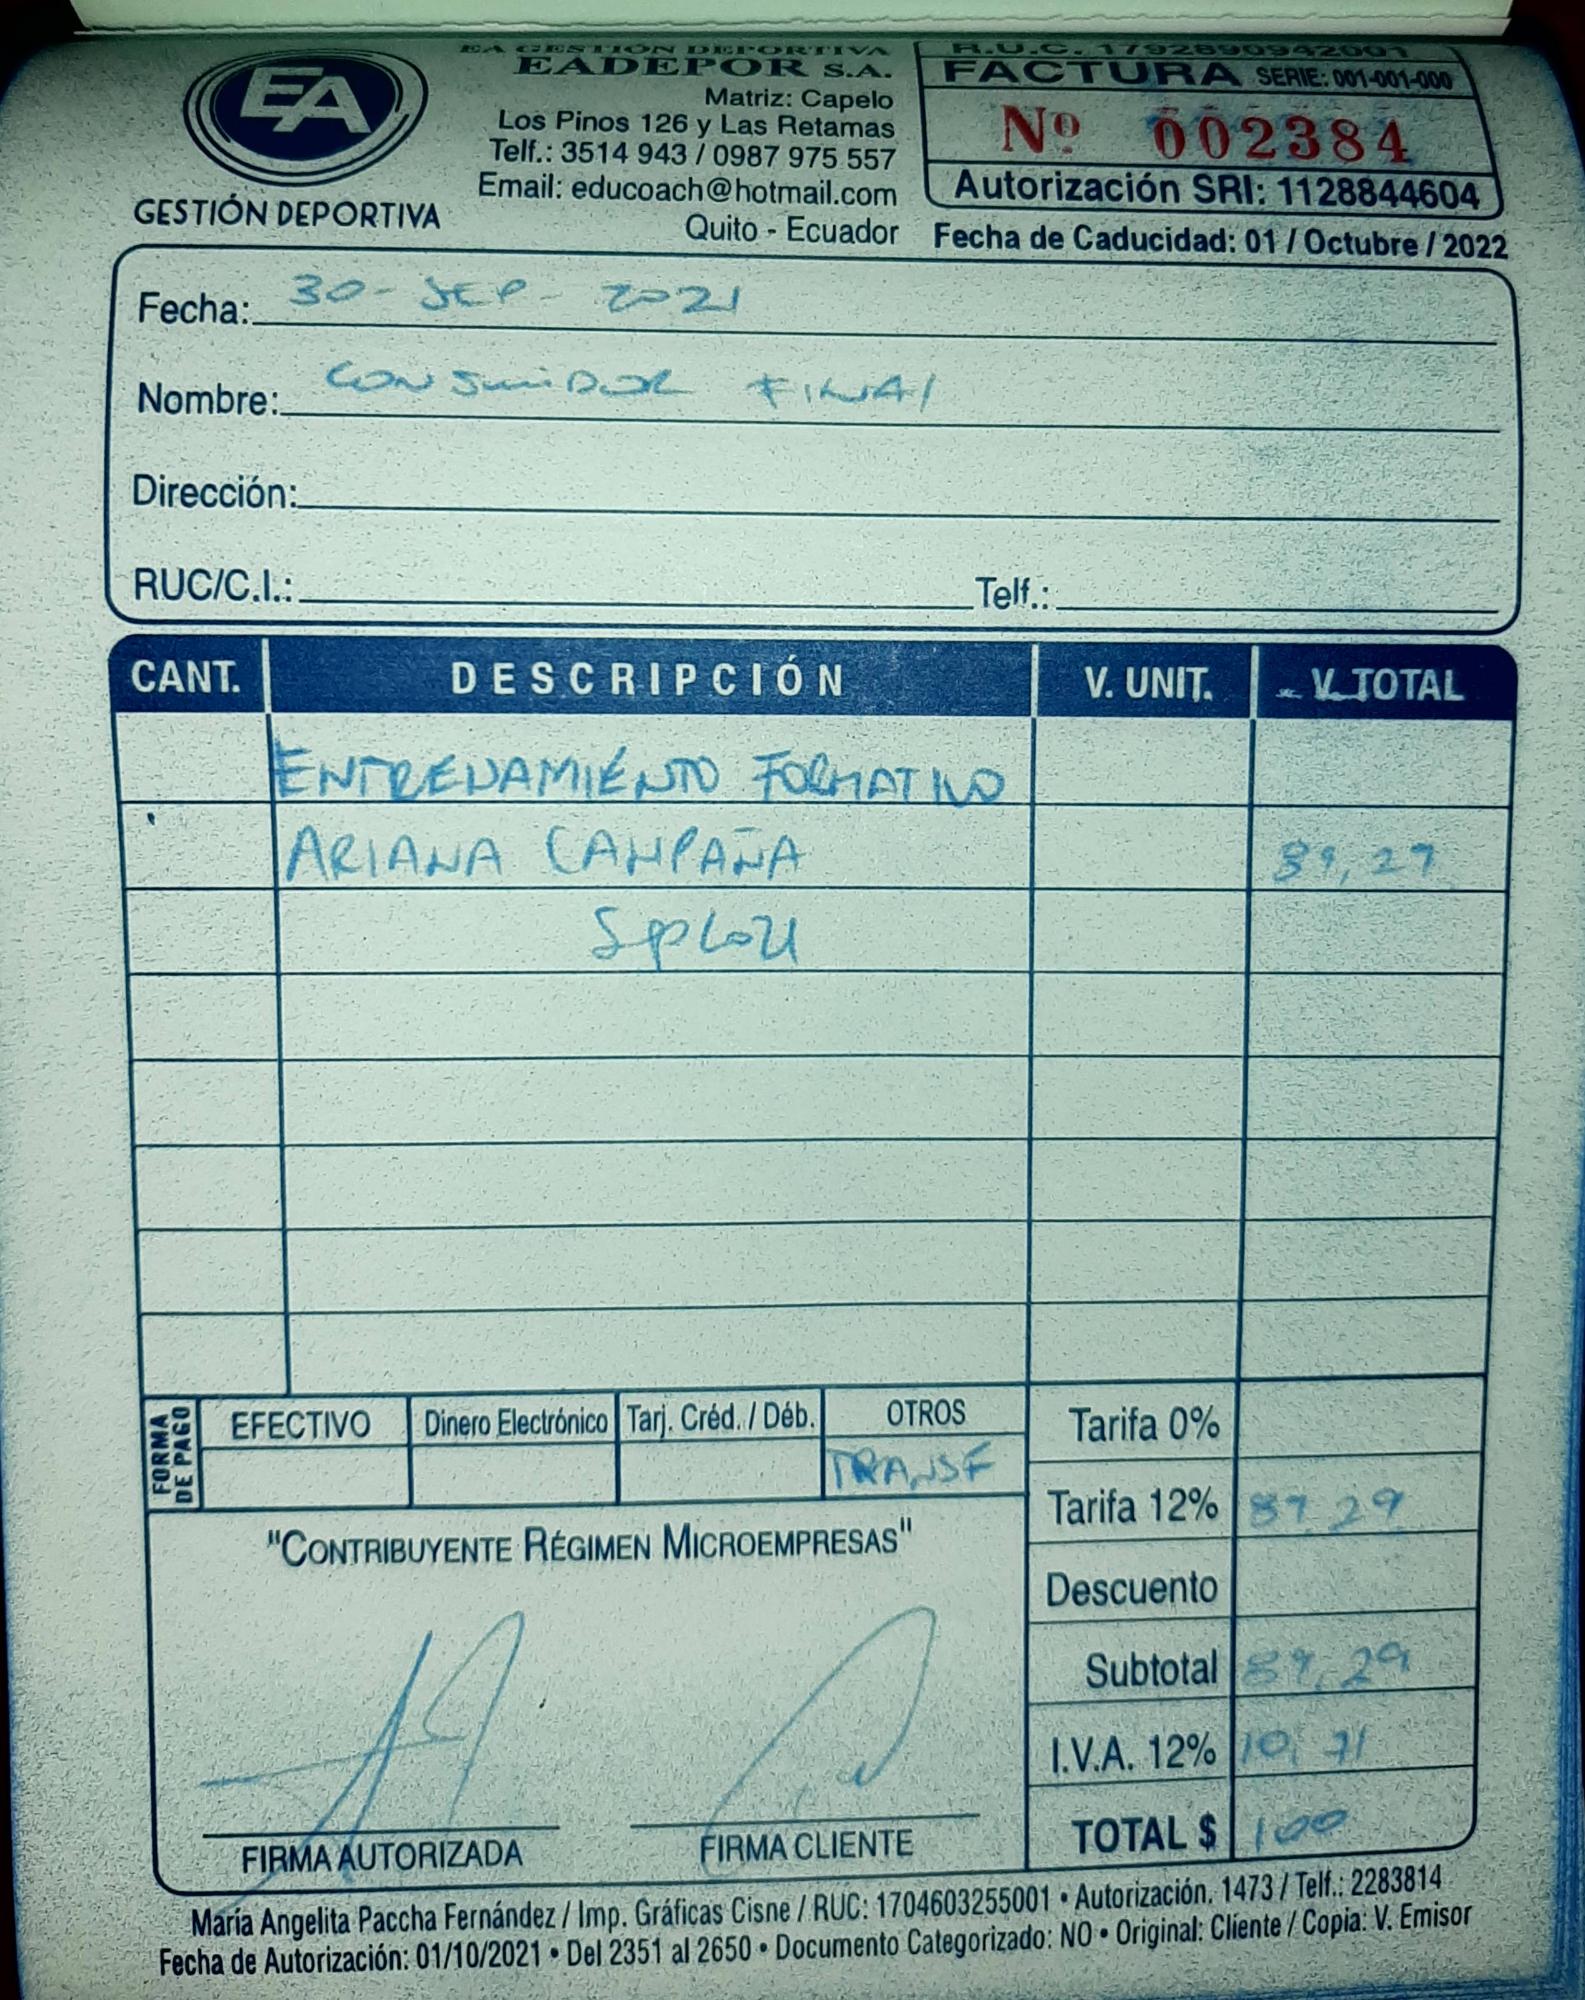 EA GESTIÓN DEPORTIVA
EADEPOR S.A.
Matriz: Capelo
Los Pinos 126 y Las Retamas
Telf.: 3514 943 / 0987 975 557
Email: educoach@hotmail.com
Quito - Ecuador
EA
GESTIÓN DEPORTIVA
R.U.C. 1792890942001
FACTURA SERIE: 001-001-000
Nº 002384
Autorización SRI: 1128844604
Fecha de Caducidad: 01 / Octubre / 2022
Fecha: 30-SEP-2021
Nombre: CONSUMIDOR FINAL
Dirección:
RUC/C.I.: Telf.:
CANT. DESCRIPCIÓN V. UNIT. V. TOTAL
ENTRENAMIENTO FORMATIVO
ARIANA CAMPAÑA 89,29
FORMA DE PAGO
EFECTIVO Dinero Electrónico Tarj. Créd. / Déb. OTROS
TRANSF
Tarifa 0%
Tarifa 12% 89,29
Descuento
Subtotal 89,29
I.V.A. 12% 10,71
TOTAL $ 100
"CONTRIBUYENTE RÉGIMEN MICROEMPRESAS"
FIRMA AUTORIZADA FIRMA CLIENTE
María Angelita Paccha Fernández / Imp. Gráficas Cisne / RUC: 1704603255001 • Autorización. 1473 / Telf.: 2283814
Fecha de Autorización: 01/10/2021 • Del 2351 al 2650 • Documento Categorizado: NO • Original: Cliente / Copia: V. Emisor